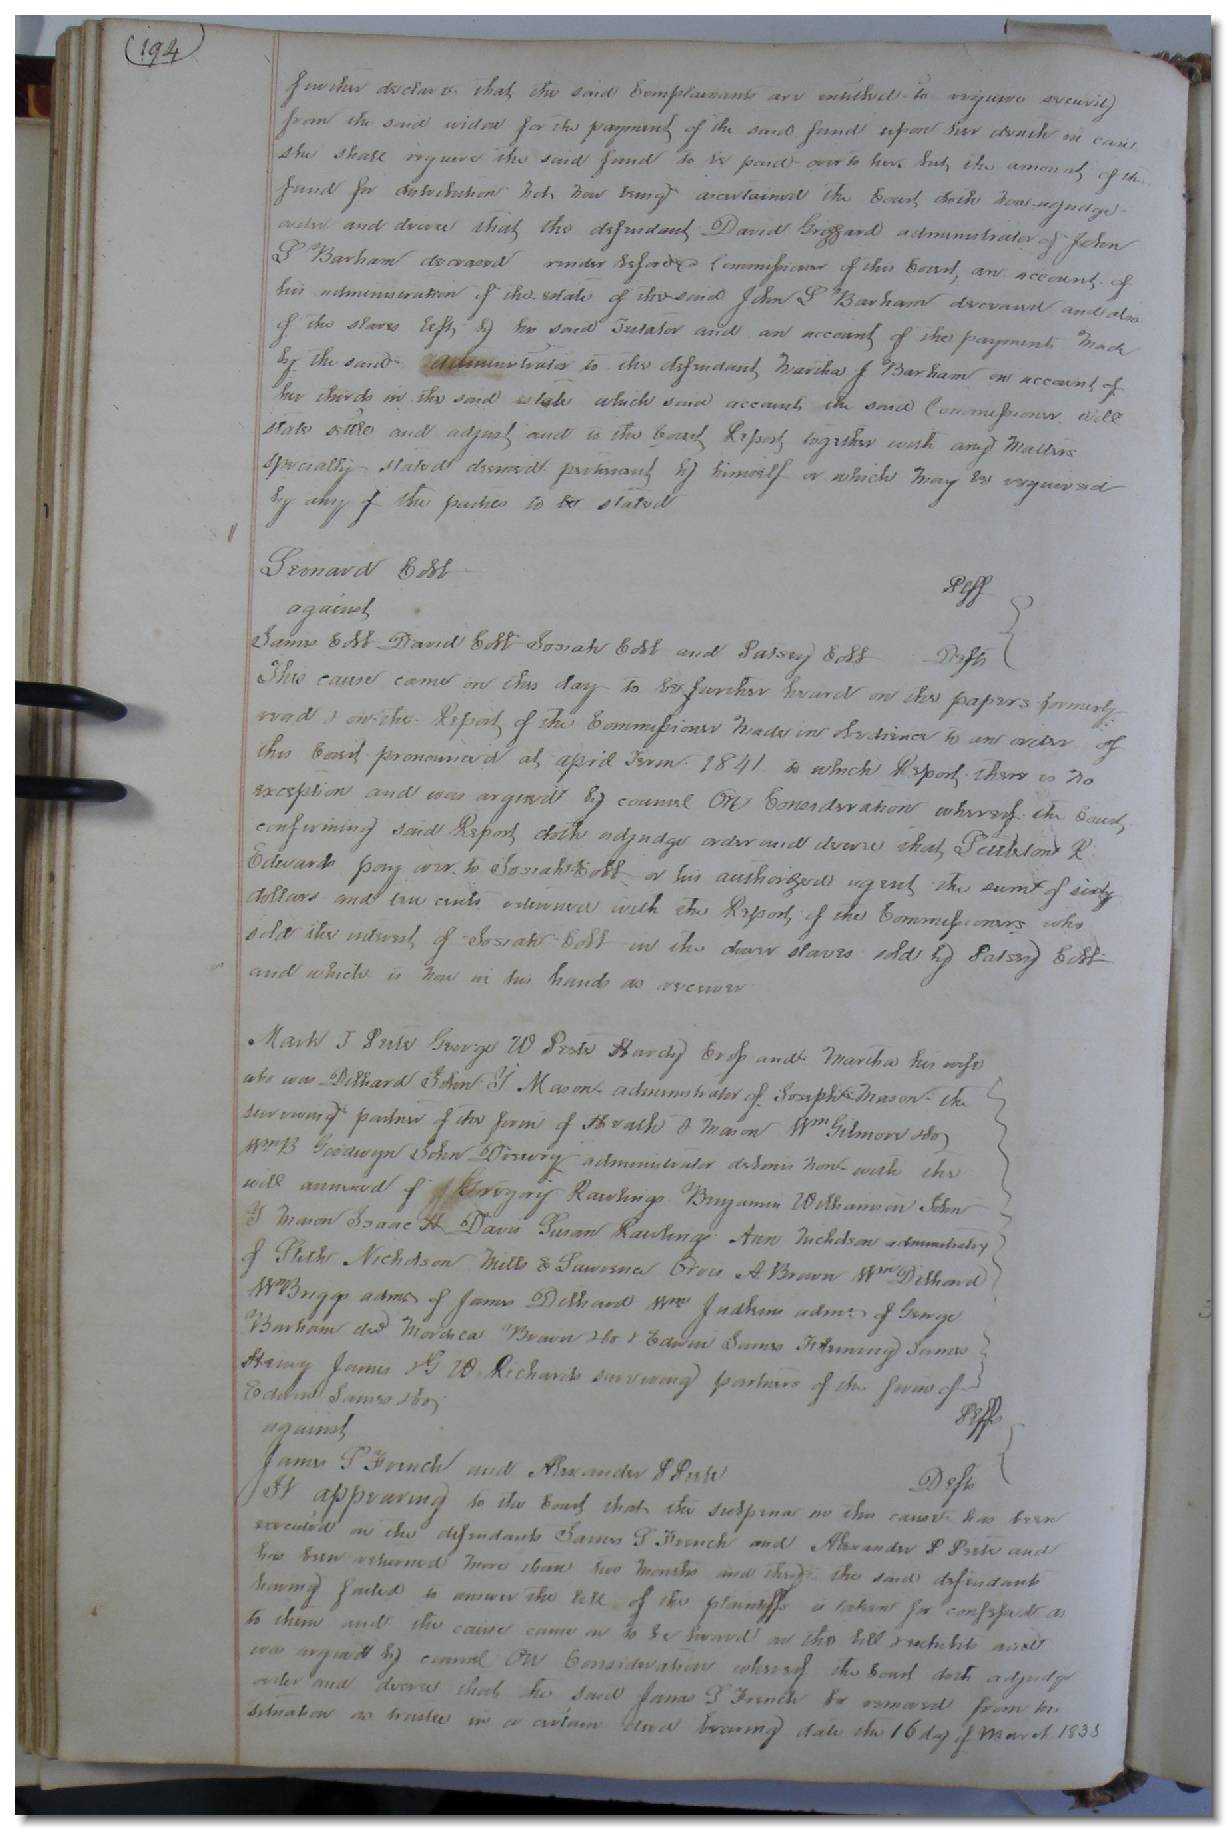 (194)
further declare that the said Complainants are entitled to require security
from the said widow for the payment of the said fund upon her death in case
she shall require the said fund to be paid over to her but the amount of the
fund for distribution not now being ascertained the Court doth now adjudge
order and decree that the defendant David Griggard administrator of John
S Barham deceased render before a Commissioner of this Court, an account of
his administration of the estate of the said John S Barham deceased and also
of the slaves left by the said Testator and an account of the payments made
by the said administrator to the defendant Martha J Barham on account of
her thirds in the said estate which said accounts the said Commissioner will
state settle and adjust and to the Court Report together with any matters
specially stated deemed pertinent by himself or which may be required
by any of the parties to be stated
Leonard Cobb Plff
against
James Cobb David Cobb Josiah Cobb and Patsey Cobb Defts
This cause came on this day to be further heard on the papers formerly
read & on the Report of the Commissioner made in obedience to an order of
this Court pronounced at april Term 1841 to which Report there is no
exception and was argued by council On Consideration whereof the Court
confirming said Report doth adjudge order and decree that Littleton R
Edwards pay over to Josiah Cobb or his authorized agent the sum of sixty
dollars and ten cents returned with the Report of the Commissioners who
sold the interest of Josiah Cobb in the dower slaves sold by Patsey Cobb
and which is now in his hands as receiver
Mark T Peete George W Peete Hardy Cross and Martha his wife
who was Dilhard John T Mason administrator of Joseph Mason the
surviving partner of the firm of Heath & Mason Wm Gilmore &Co
WmB Goodwyn John Drewry administrator debonis non with the
will annexed of Gregory Rawlings Benjamin Williamson John
T Mason Isaac H Davis Susan Rawlings Ann Nicholson administratrix
of Pleth Nicholson Mills E Lawrence Orris A Brown Wm Dilhard
Wm Briggs admr of James Dilhard Wm Judkins admr of George
Barham decd Mordica Brown &Co & Edwin James Fleming James
Henry James & G W Richards surviving partners of the firm of
Edwin James &Co Plffs
against
James S French and Alexander P Peete Defts
It appearing to the Court that the subpena in this cause has been
executed on the defendants James S French and Alexander P Peete and
has been returned more than two months and they the said defendants
having failed to answer the bill of the plaintiffs is taken for confessed as
to them and the cause came on to be heard on the bill & exhibits and
was argued by council On Consideration whereof the Court doth adjudge
order and decree that the said James S French be removed from his
situation as trustee in a certain deed bearing date the 16 day of March 1833